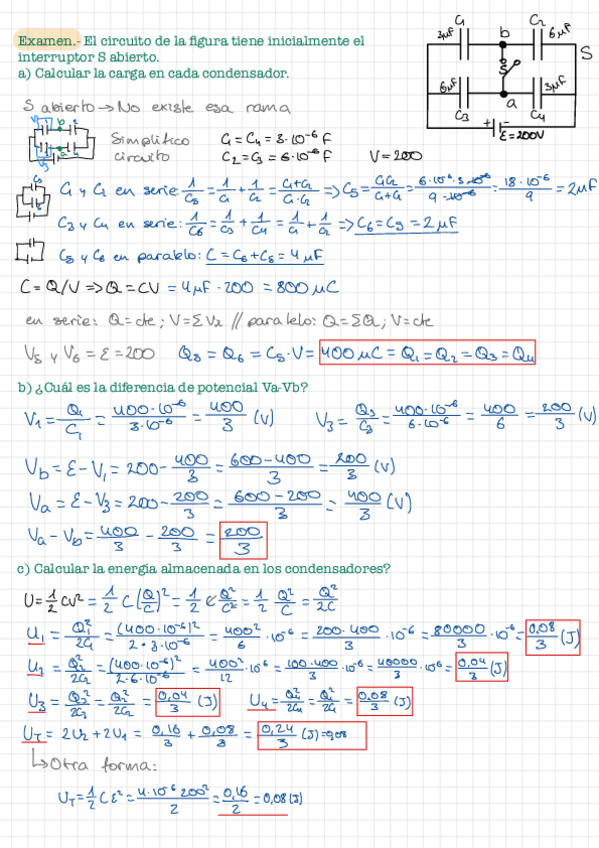 Examen.- El circuito de la figura tiene inicialmente el
interruptor S abierto.
a) Calcular la carga en cada condensador.
C₁ C₂
3μF b 6μF
S
6μF a 3μF
C₃ C₄
ε=200V
S abierto → No existe esa rama
Simplifico C₁ = C₄ = 3·10⁻⁶ F
circuito C₂ = C₃ = 6·10⁻⁶ F V=200
C₁ y C₂ en serie: 1/C₅ = 1/C₁ + 1/C₂ = (C₁+C₂)/(C₁·C₂) => C₅ = C₁C₂/(C₁+C₂) = 6·10⁻⁶·3·10⁻⁶/9·10⁻⁶ = 18·10⁻⁶/9 = 2μF
C₃ y C₄ en serie: 1/C₆ = 1/C₃ + 1/C₄ = 1/C₁ + 1/C₂ => C₆ = C₅ = 2μF
C₅ y C₆ en paralelo: C = C₆ + C₅ = 4μF
C = Q/V => Q = CV = 4μF · 200 = 800μC
en serie: Q = cte; V = ΣVₓ // paralelo: Q = ΣQ; V = cte
V₅ y V₆ = ε = 200 Q₅ = Q₆ = C₅·V = 400μC = Q₁ = Q₂ = Q₃ = Q₄
b) ¿Cuál es la diferencia de potencial Va-Vb?
V₁ = Q₁/C₁ = 400·10⁻⁶/3·10⁻⁶ = 400/3 (V) V₃ = Q₃/C₃ = 400·10⁻⁶/6·10⁻⁶ = 400/6 = 200/3 (V)
Vb = ε - V₁ = 200 - 400/3 = (600-400)/3 = 200/3 (V)
Va = ε - V₃ = 200 - 200/3 = (600-200)/3 = 400/3 (V)
Va - Vb = 400/3 - 200/3 = 200/3
c) Calcular la energía almacenada en los condensadores?
U = 1/2 CV² = 1/2 C (Q/C)² = 1/2 C Q²/C² = 1/2 Q²/C = Q²/2C
U₁ = Q₁²/2C₁ = (400·10⁻⁶)²/2·3·10⁻⁶ = 400²/6 · 10⁻⁶ = 200·400/3 · 10⁻⁶ = 80000/3 · 10⁻⁶ = 0,08/3 (J)
U₂ = Q₂²/2C₂ = (400·10⁻⁶)²/2·6·10⁻⁶ = 400²/12 · 10⁻⁶ = 100·400/3 · 10⁻⁶ = 40000/3 · 10⁻⁶ = 0,04/3 (J)
U₃ = Q₃²/2C₃ = Q₂²/2C₂ = 0,04/3 (J) U₄ = Q₄²/2C₄ = Q₁²/2C₁ = 0,08/3 (J)
U_T = 2U₂ + 2U₁ = 0,16/3 + 0,08/3 = 0,24/3 (J) = 0,08
↳ Otra forma:
U_T = 1/2 Cε² = 4·10⁻⁶ 200²/2 = 0,16/2 = 0,08 (J)